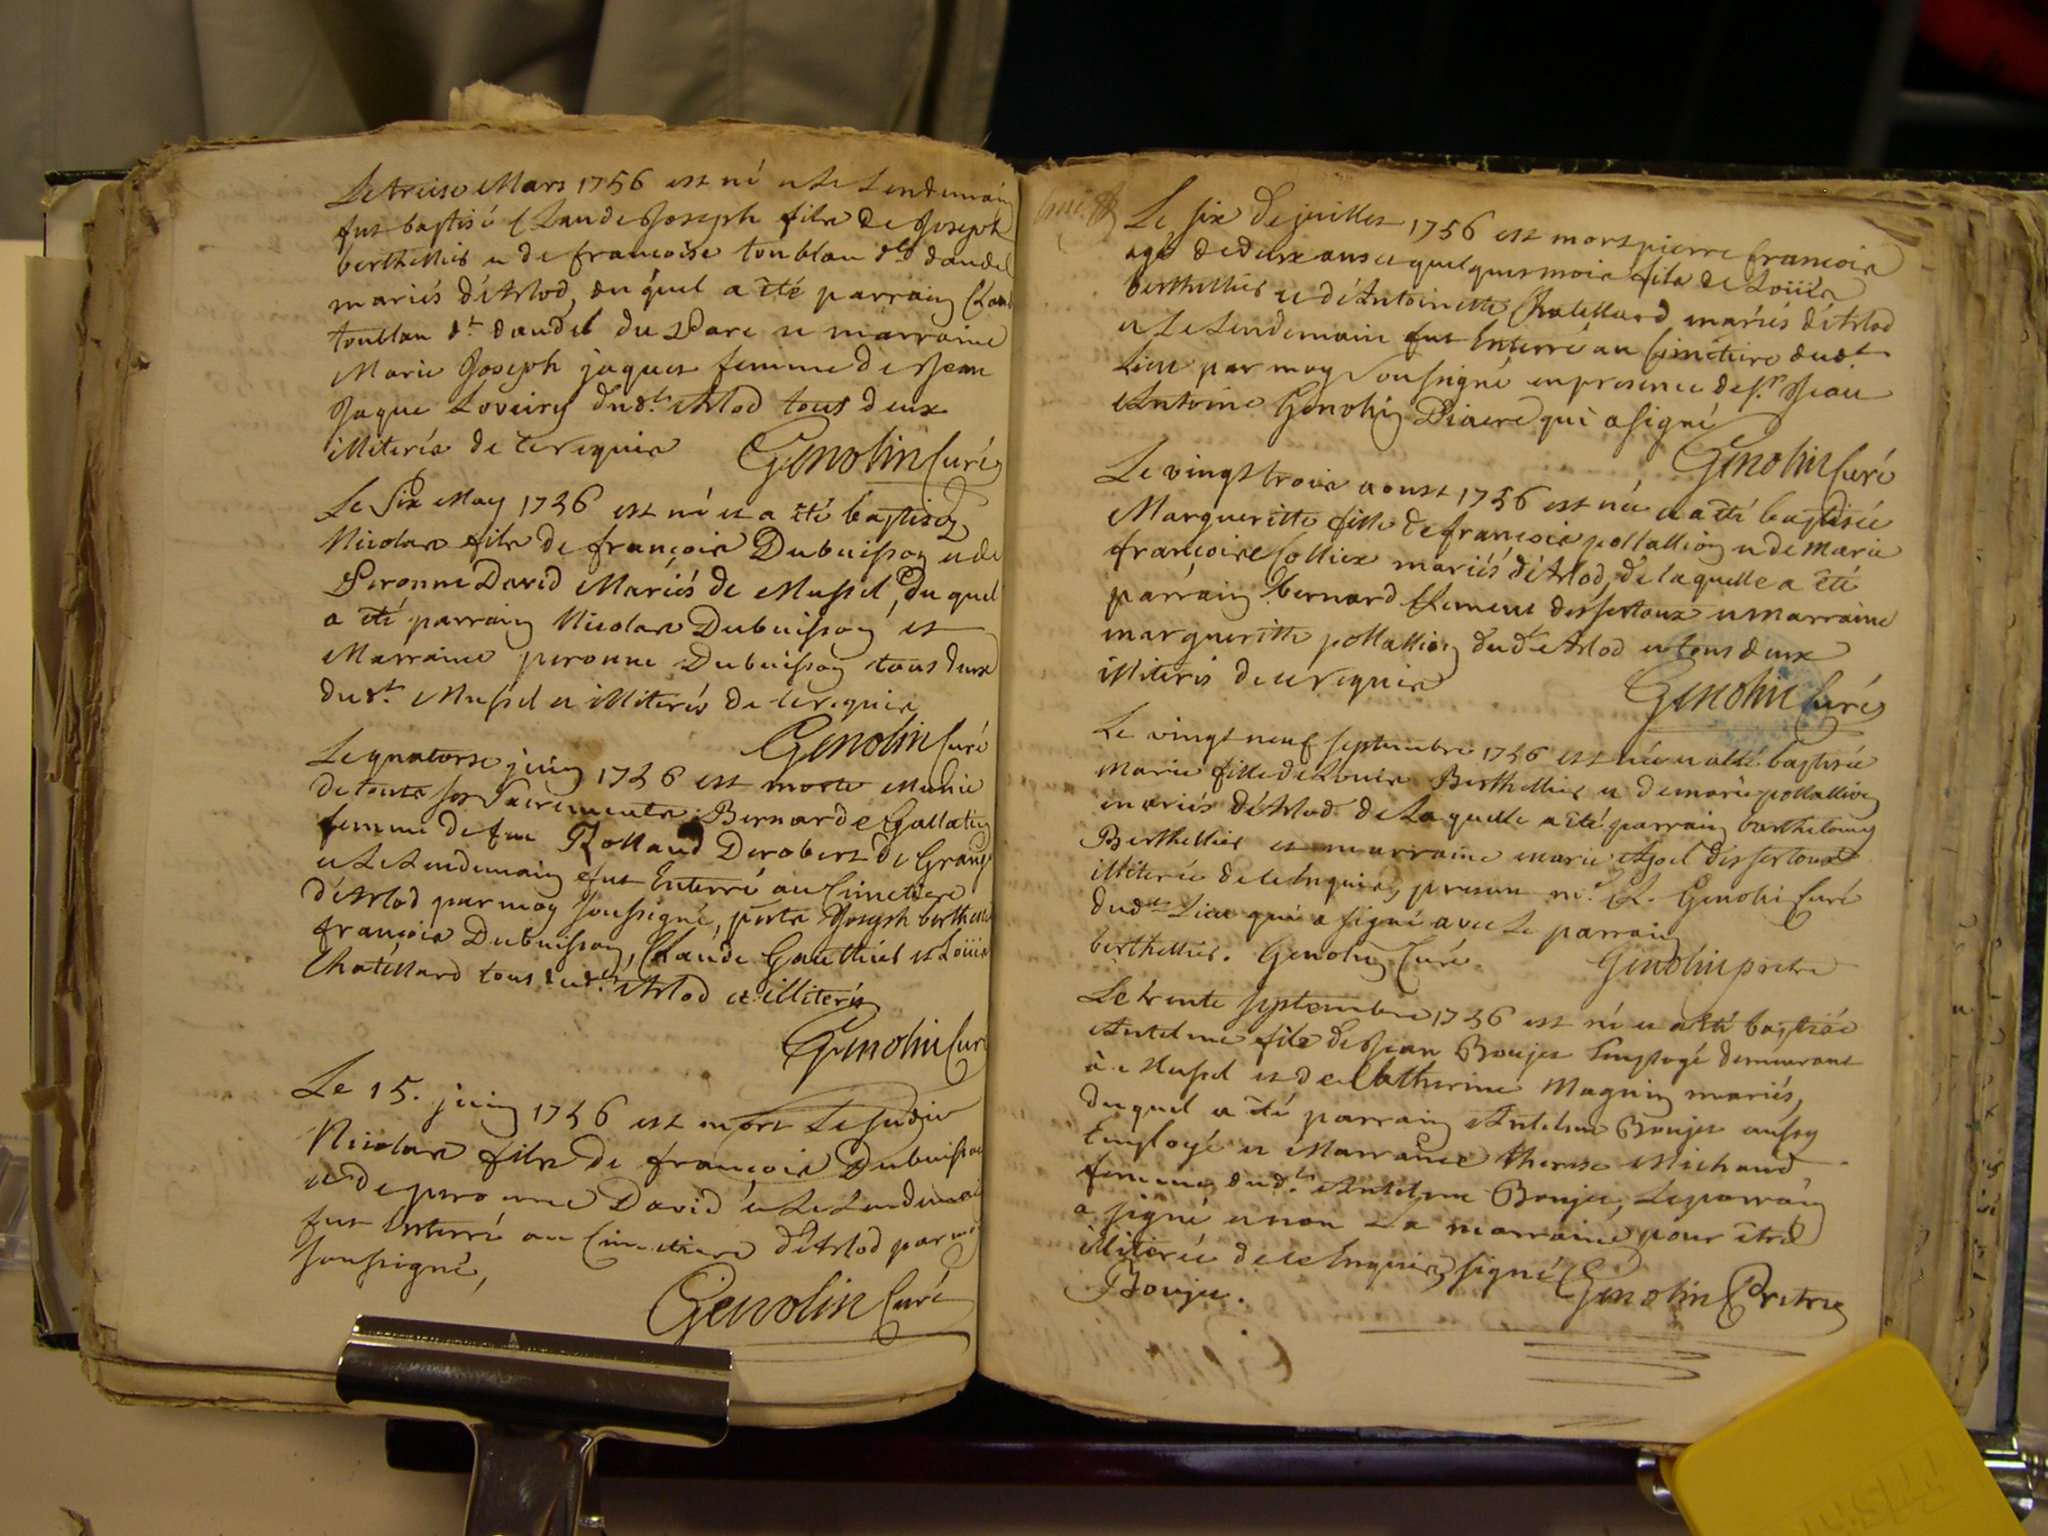 Le treise Mars 1756 est né et le lendemain
fut baptisé Claude Joseph fils de Joseph
berthellier et de francoise toublan dt daudel
mariés d'Arlod, duquel a été parrain Claud
toublan dt daudel du Parc et marraine
Marie Joseph jaquet femme de Jean
Jaque dudt Arlod tous deux
illiterés de ce requis Genolin Curé
Le Six May 1756 est né et a été baptisez
Nicolas fils de françois Dubuisson et de
Peronne David Mariés de Mussel, du quel
a été parrain Nicolas Dubuisson et
Marraine peronne Dubuisson tous deux
dudt. Mussel et illiterés de ce requis
Genolin Curé
Le quatorse juin 1756 est morte munie
de touts ses Sacrements Bernarde Gallatin
femme de feu Rolland Derobert de Grang
et le lendemain fut Enterré au Cimetiere
d'Arlod par moy soussigné, pnts Joseph berthell
françois Dubuisson, Claude Gauthier et Loüis
Chatellard tous dudt. Arlod et illiterés
Genolin Curé
Le 15. juin 1756 est mort le susdit
Nicolas fils de françois Dubuisson
et de peronne David et le Lendemai
fut Enterré au Cimetiere d'Arlod par moi
soussigné,
Genolin Curé
Le six de juillet 1756 est mort pierre francois
agé de deux ans et quelques mois fils de Loüis
berthellier et d'Antoinette Chatellard mariés d'Arlod
et le Lendemain fut Enterré au Cimetiere dudt
Lieu par moy Soussigné en presence de sr. Jean
Antoine Genolin Diacre qui a signé
Genolin Curé
Le vingt trois aoust 1756 est née et a été baptisée
Margueritte fille de francois pollallion et de Marie
françoise Colliex mariés d'Arlod, de laquelle a été
parrain bernard Clement dessertoux et marraine
margueritte pollallion dudt Arlod et tous deux
illiterés de ce requis
Genolin Curé
Le vingt neuf septembre 1756 est née et a été baptisée
Marie fille de Louis Berthellier et de marie pollallion
mariés d'Arlod de Laquelle a été parrain barthelemy
Berthellier et marraine marie dessertoux
illiterée de ce Enquise, present Genolin Curé
dudt Lieu qui a signé avec le parrain
berthellier. Genolin Curé. Genolin pretre
Le trente septembre 1756 est né et a été baptisé
Antelme fils de Jean Boujet Employé demeurant
à Mussel et de Catherine Magnin mariés,
duquel a été parrain Antelme Boujet aussy
Employé et Marraine therese Michaud
femme dudt. Antelme Boujet, le parrain
a signé et non La marraine pour être
illiterée de ce Enquise, signé Genolin Pretre
Boujet.